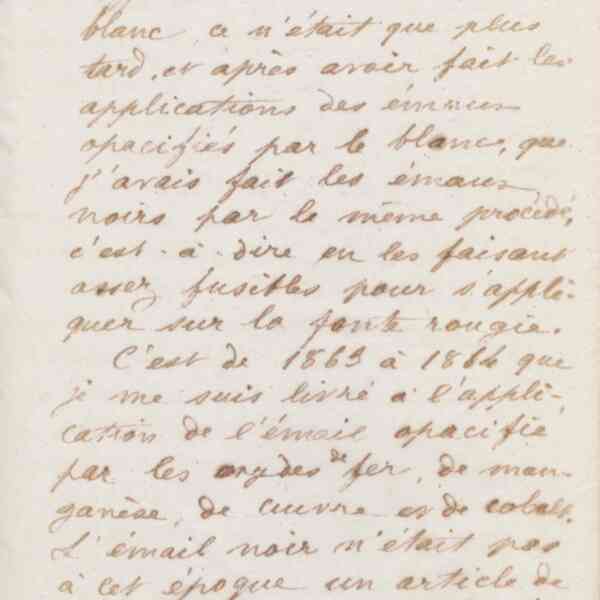 blanc, ce n'était que plus
tard, et après avoir fait les
applications des émaux
opacifiés par le blanc, que
j'avais fait les émaux
noirs par le même procédé,
c'est-à-dire en les faisant
assez fusibles pour s'appli-
quer sur la fonte rougie.
C'est de 1863 à 1864 que
je me suis livré à l'appli-
cation de l'émail opacifié
par les oxydes de fer, de man-
ganèse, de cuivre et de cobalt.
L'émail noir n'était pas
à cet époque un article de